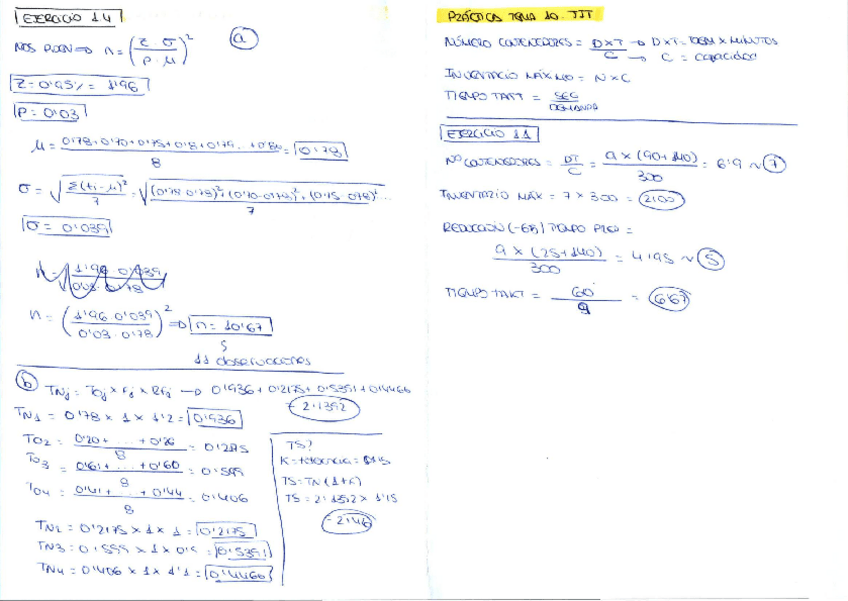 EJERCICIO 14
NOS PIDEN => n = (Z σ / P · μ)²
a
Z = 0'95% = 1'96
P = 0'03
μ = 0'78 + 0'70 + 0'75 + 0'8 + 0'79 ... + 0'80 / 8 = 0'78
σ = √ Σ(ti - μ)² / 7 = √ (0'78 0'78)² + (0'70 - 0'78)² + (0'75 0'78)² ... / 7
σ = 0'039
1'96 · 0'039 / 0'03 · 0'78
n = (1'96 · 0'039 / 0'03 · 0'78)² => n = 10'67
11 observaciones
b TNj = TOj × Fj × RFj → 0'936 + 0'2175 + 0'5391 + 0'4466
= 2'1392
TN1 = 0'78 × 1 × 1'2 = 0'936
TO2 = 0'20 + ... + 0'26 / 8 = 0'2175
TO3 = 0'61 + ... + 0'60 / 8 = 0'599
TO4 = 0'41 + ... + 0'44 / 8 = 0'406
TN2 = 0'2175 × 1 × 1 = 0'2175
TN3 = 0'599 × 1 × 0'9 = 0'5391
TN4 = 0'406 × 1 × 1'1 = 0'4466
TS?
K = tolerancia = 0'15
TS = TN (1 + K)
TS = 2'1392 × 1'15
= 2'46
PRÁCTICA TEMA 10. JIT
NÚMERO CONTENEDORES = D × T / C → D × T =
→ C = capacidad
INVENTARIO MÁXIMO = N × C
TIEMPO TAKT = SEG / DEMANDA
EJERCICIO 11
NO CONTENEDORES = DT / C = 9 × (90 + 140) / 300 = 6'9 ~ 7
INVENTARIO MÁX = 7 × 300 = 2100
REDUCCIÓN (-65) TIEMPO PREP =
9 × (25 + 140) / 300 = 4'95 ~ 5
TIEMPO TAKT = 60 / 9 = 6'67